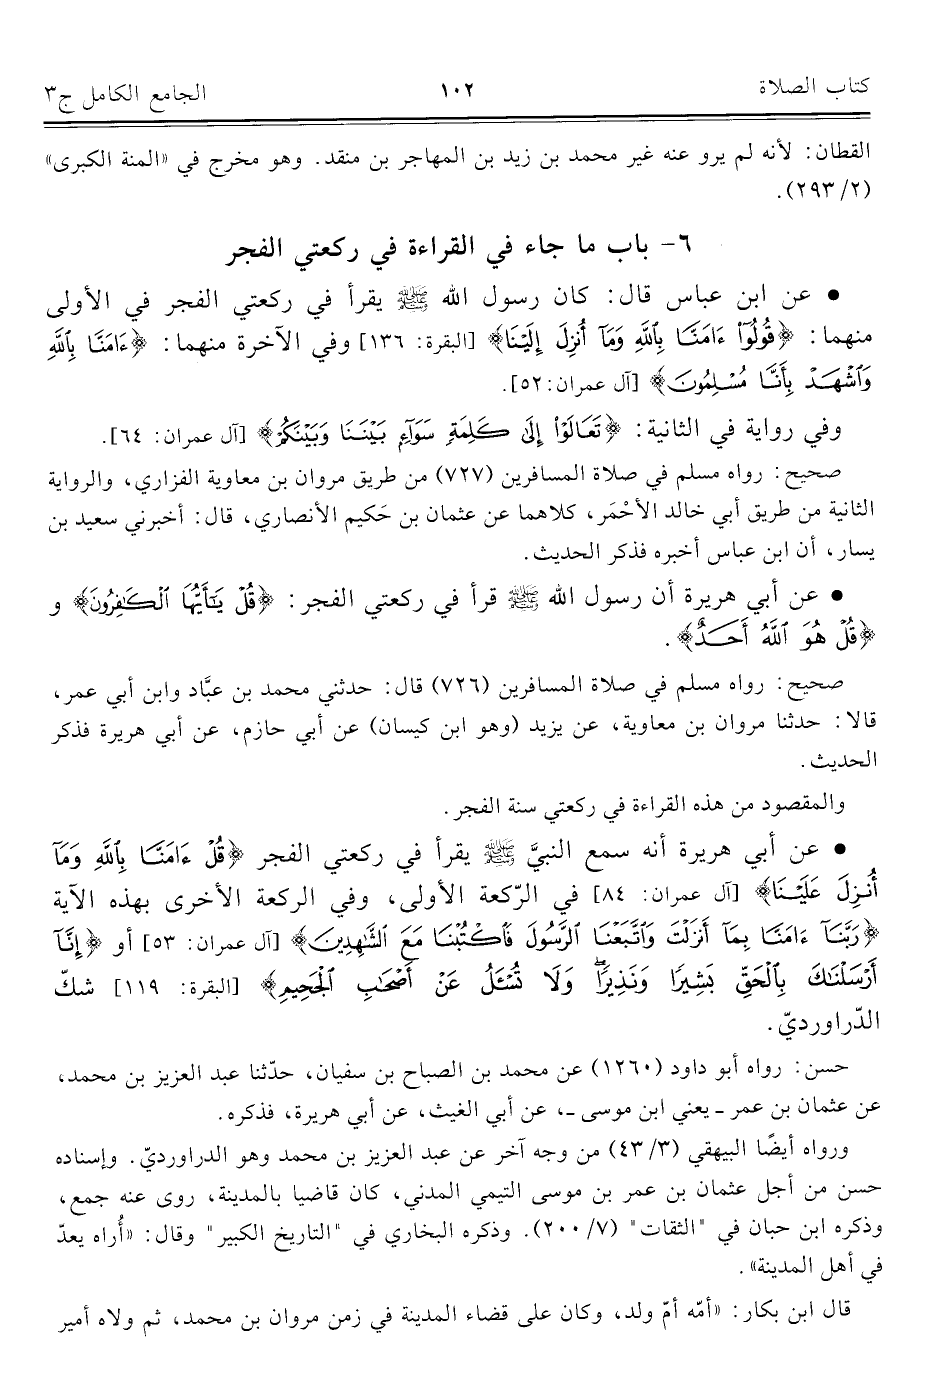 كتاب الصلاة ١٠٢ الجامع الكامل ج٣
القطان: لأنه لم يرو عنه غير محمد بن زيد بن المهاجر بن منقد. وهو مخرج في «المنة الكبرى»
(٢/ ٢٩٣).
٦- باب ما جاء في القراءة في ركعتي الفجر
• عن ابن عباس قال: كان رسول الله ﷺ يقرأ في ركعتي الفجر في الأولى
منهما: ﴿قُولُوٓا۟ ءَامَنَّا بِٱللَّهِ وَمَآ أُنزِلَ إِلَيْنَا﴾ [البقرة: ١٣٦] وفي الآخرة منهما: ﴿ءَامَنَّا بِٱللَّهِ
وَٱشْهَدْ بِأَنَّا مُسْلِمُونَ﴾ [آل عمران: ٥٢].
وفي رواية في الثانية: ﴿تَعَالَوْا۟ إِلَىٰ كَلِمَةٍ سَوَآءٍ بَيْنَنَا وَبَيْنَكُمْ﴾ [آل عمران: ٦٤].
صحيح: رواه مسلم في صلاة المسافرين (٧٢٧) من طريق مروان بن معاوية الفزاري، والرواية
الثانية من طريق أبي خالد الأحْمَر، كلاهما عن عثمان بن حَكيم الأنصاري، قال: أخبرني سعيد بن
يسار، أن ابن عباس أخبره فذكر الحديث.
• عن أبي هريرة أن رسول الله ﷺ قرأ في ركعتي الفجر: ﴿قُلْ يَـٰٓأَيُّهَا ٱلْكَـٰفِرُونَ﴾ و
﴿قُلْ هُوَ ٱللَّهُ أَحَدٌ﴾.
صحيح: رواه مسلم في صلاة المسافرين (٧٢٦) قال: حدثني محمد بن عبَّاد وابن أبي عمر،
قالا: حدثنا مروان بن معاوية، عن يزيد (وهو ابن كيسان) عن أبي حازم، عن أبي هريرة فذكر
الحديث.
والمقصود من هذه القراءة في ركعتي سنة الفجر.
• عن أبي هريرة أنه سمع النبيَّ ﷺ يقرأ في ركعتي الفجر ﴿قُلْ ءَامَنَّا بِٱللَّهِ وَمَآ
أُنزِلَ عَلَيْنَا﴾ [آل عمران: ٨٤] في الرّكعة الأولى، وفي الركعة الأخرى بهذه الآية
﴿رَبَّنَآ ءَامَنَّا بِمَآ أَنزَلْتَ وَٱتَّبَعْنَا ٱلرَّسُولَ فَٱكْتُبْنَا مَعَ ٱلشَّـٰهِدِينَ﴾ [آل عمران: ٥٣] أو ﴿إِنَّآ
أَرْسَلْنَـٰكَ بِٱلْحَقِّ بَشِيرًا وَنَذِيرًا ۖ وَلَا تُسْـَٔلُ عَنْ أَصْحَـٰبِ ٱلْجَحِيمِ﴾ [البقرة: ١١٩] شكّ
الدّراورديّ.
حسن: رواه أبو داود (١٢٦٠) عن محمد بن الصباح بن سفيان، حدّثنا عبد العزيز بن محمد،
عن عثمان بن عمر ـ يعني ابن موسى ـ، عن أبي الغيث، عن أبي هريرة، فذكره.
ورواه أيضًا البيهقي (٣/ ٤٣) من وجه آخر عن عبد العزيز بن محمد وهو الدراورديّ. وإسناده
حسن من أجل عثمان بن عمر بن موسى التيمي المدني، كان قاضيا بالمدينة، روى عنه جمع،
وذكره ابن حبان في "الثقات" (٧/ ٢٠٠). وذكره البخاري في "التاريخ الكبير" وقال: «أُراه يعدّ
في أهل المدينة».
قال ابن بكار: «أمّه أمّ ولد، وكان على قضاء المدينة في زمن مروان بن محمد، ثم ولاه أمير